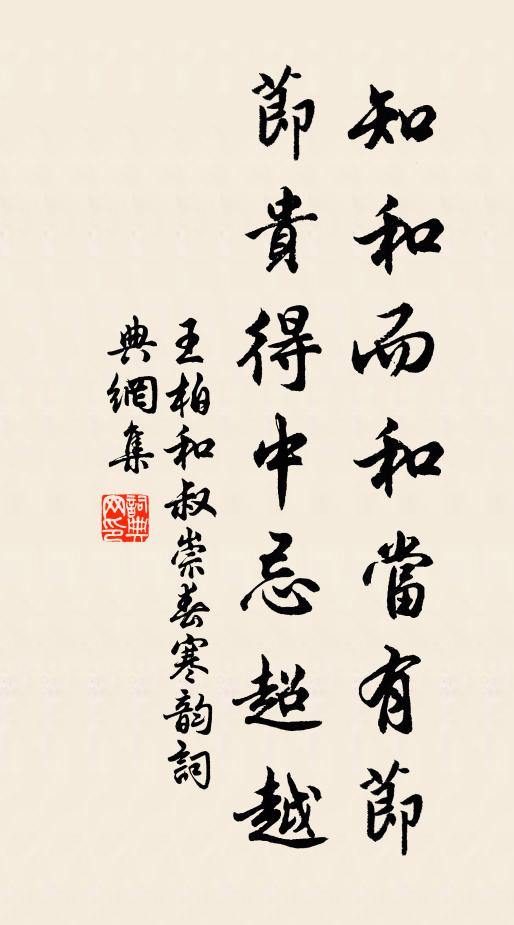 知和而和當有節
節貴得中忌超越
王柏和叔崇春寒韵詞
典網集
詞典網印